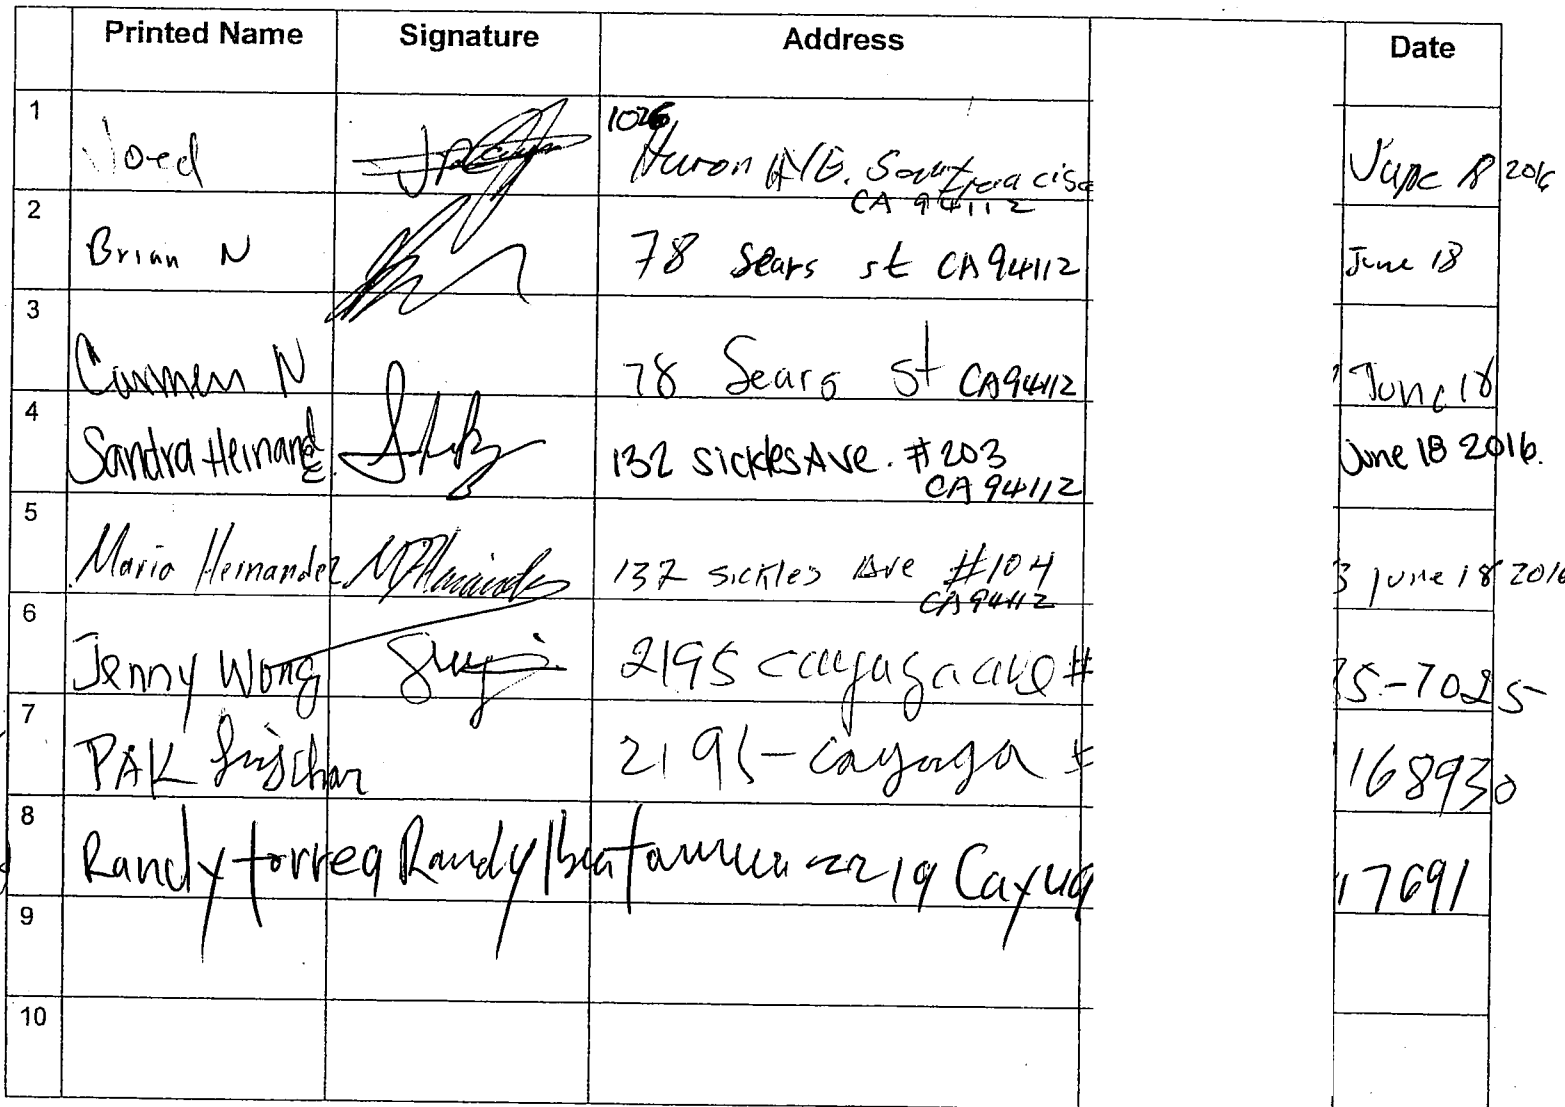 Printed Name Signature Address Date
1 1026
Huron AVE. San Francisco June 18 2016
CA 94112
2 Brian N 78 Sears st CA 94112 June 18
3 Carmen N 78 Sears St CA 94112 June 18
4 Sandra Hernandez 132 Sickles Ave. #203 June 18 2016.
CA 94112
5 Mario Hernandez 132 sickles Ave #104 3 june 18 2016
CA 94112
6 Jenny Wong 2195 cayuga ave # 5-7025
7 PAK 2195- cayuga # 168930
8 Randy torrea Randy 2219 Cayug 17691
9
10